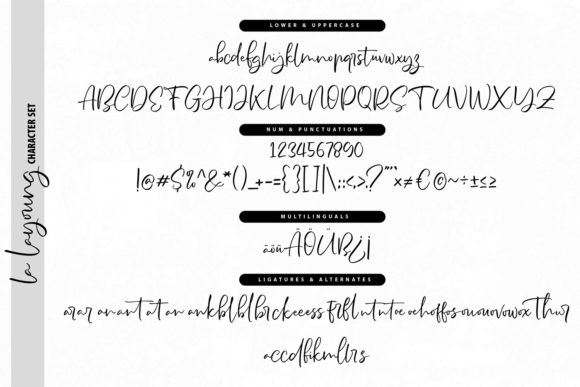 la layoung CHARACTER SET
LOWER & UPPERCASE
abcdefghijklmnopqrstuvwxyz
ABCDEFGHIJKLMNOPQRSTUVWXYZ
NUM & PUNCTUATIONS
1234567890
!@#$%^&*()_+-={}[]|\;:<,>.?"'`×≠€©~÷±≤≥
MULTILINGUALS
äöüÄÖÜß¿¡
LIGATURES & ALTERNATES
arar an ant at an ankblblbrckeeess
accdfikmllrs